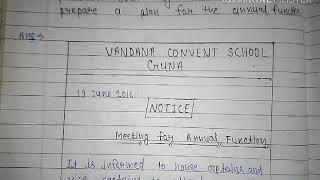 prepare a plan for the annual function
Ans →
VANDANA CONVENT SCHOOL
GUNA
19 June 2016
NOTICE
Meeting for Annual Function
It is informed to house captains and